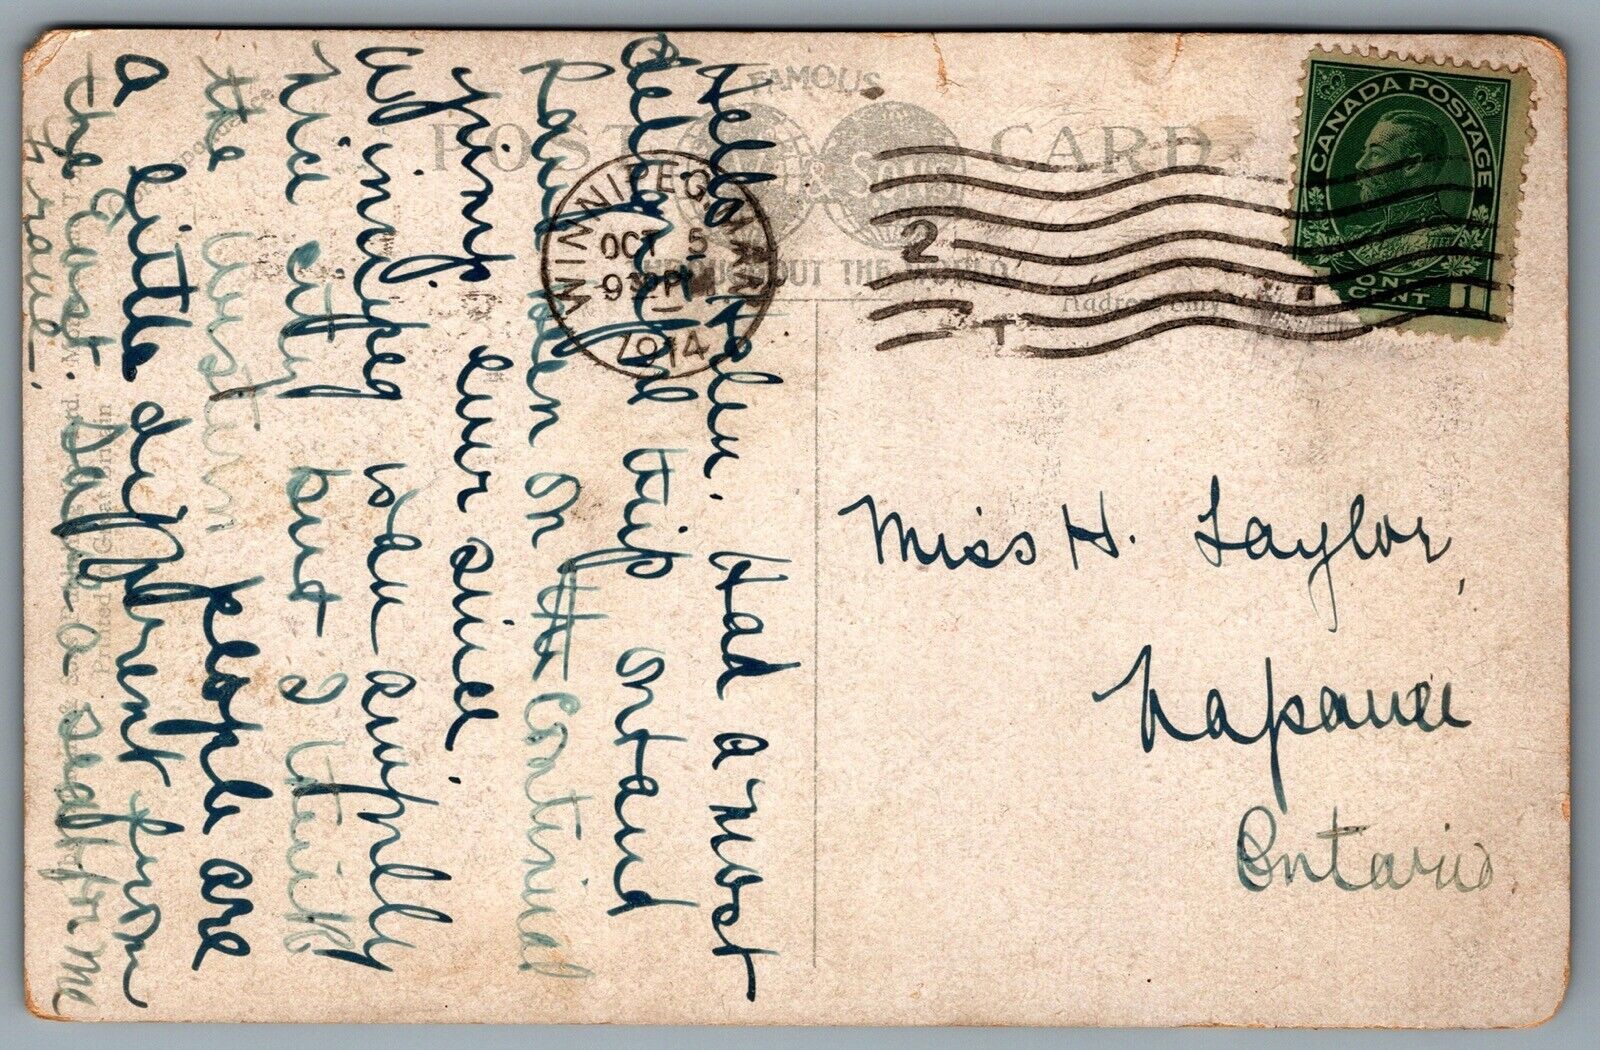 FAMOUS
POST CARD
THROUGHOUT THE WORLD
CANADA POSTAGE
ONE CENT
1
WINNIPEG MAN.
OCT 5
9 30 PM
1914
2
Hello Helen. Had a most
delightful trip out and
have been on <del>th</del> continual
jump ever since.
Winnipeg is an awfully
nice city but I think
the western people are
a little different from
the East. Save a seat for me
Miss H. Taylor,
Napanee
Ontario
Printed in Great Britain